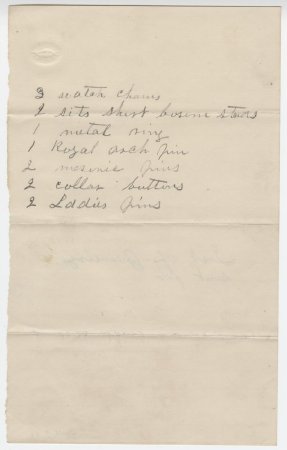 3 watch chains
2 sets shirt bosom studs
1 metal ring
1 Royal arch pin
2 masonic pins
2 collar buttons
2 Ladies pins